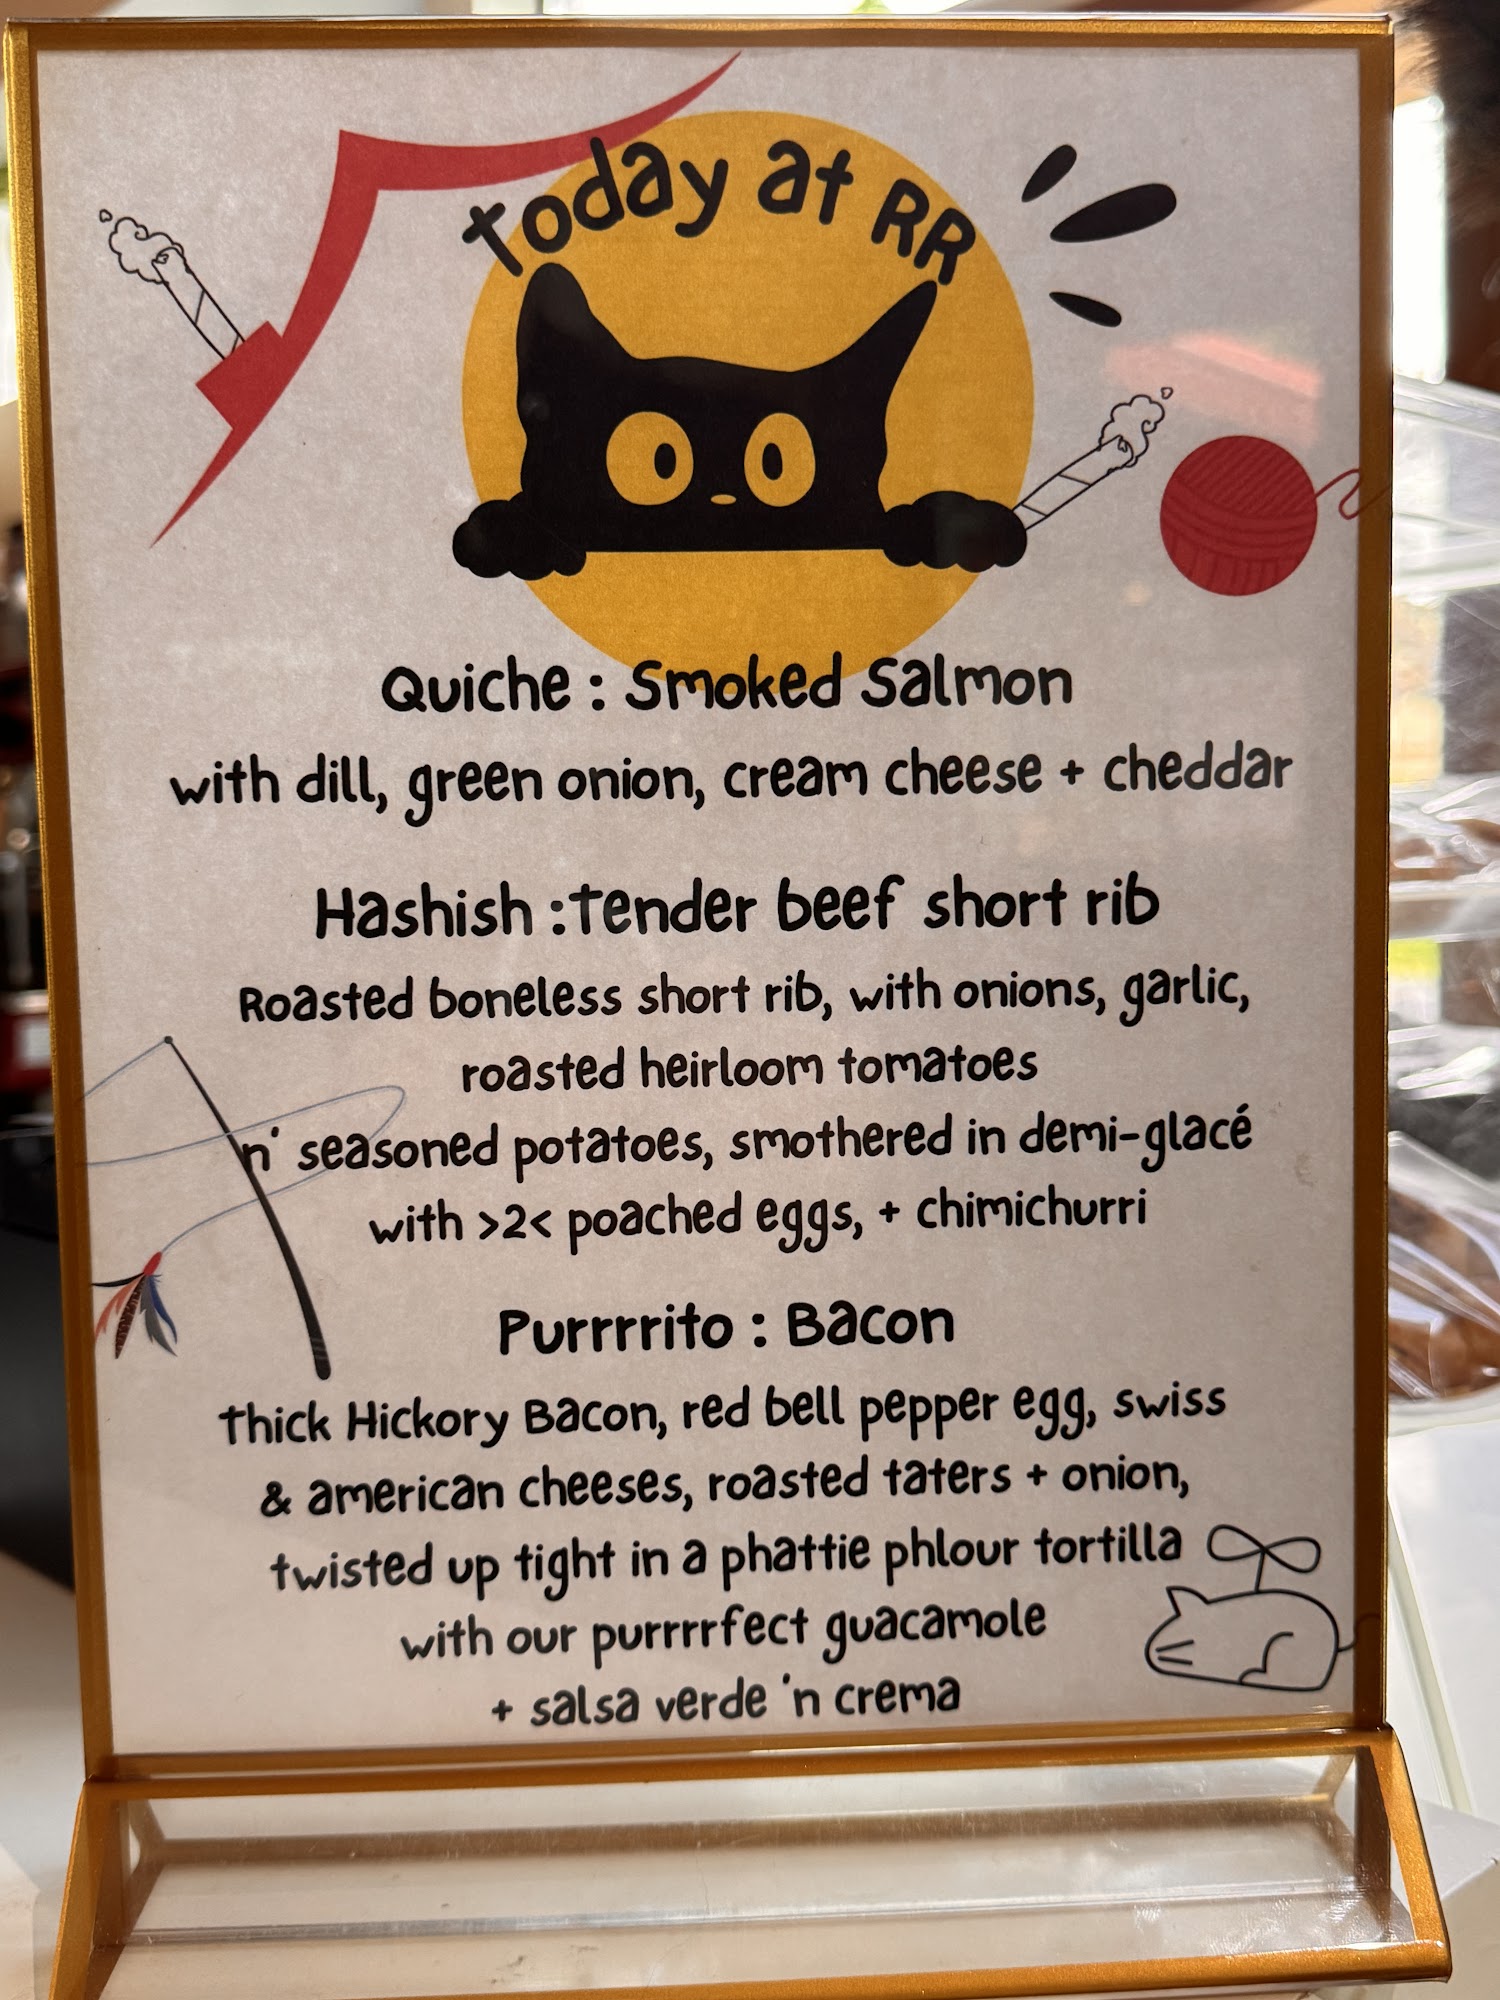 today at RR
Quiche : Smoked Salmon
with dill, green onion, cream cheese + cheddar
Hashish :Tender beef short rib
Roasted boneless short rib, with onions, garlic,
roasted heirloom tomatoes
n' seasoned potatoes, smothered in demi-glacé
with >2< poached eggs, + chimichurri
Purrrrito : Bacon
Thick Hickory Bacon, red bell pepper egg, swiss
& american cheeses, roasted taters + onion,
twisted up tight in a phattie phlour tortilla
with our purrrrfect guacamole
+ salsa verde 'n crema